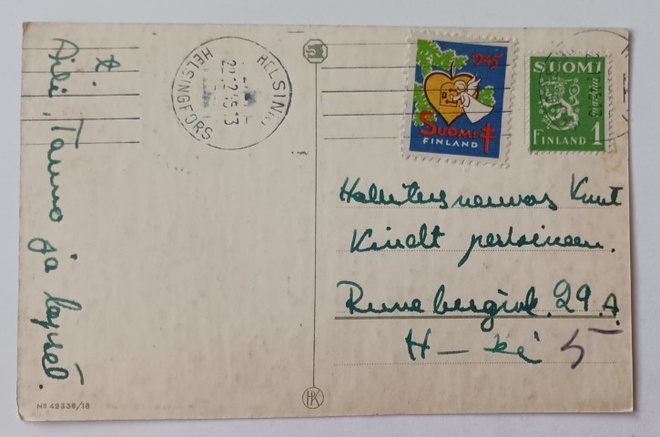 Aili, Tauno ja lapset.
HELSINKI
HELSINGFORS
1945
SUOMI
FINLAND
SUOMI
FINLAND 1
markka
Hallitusneuvos Knut
perheineen.
Runebergink. 29 A
H–ki 5
HK
Nº 42338/18